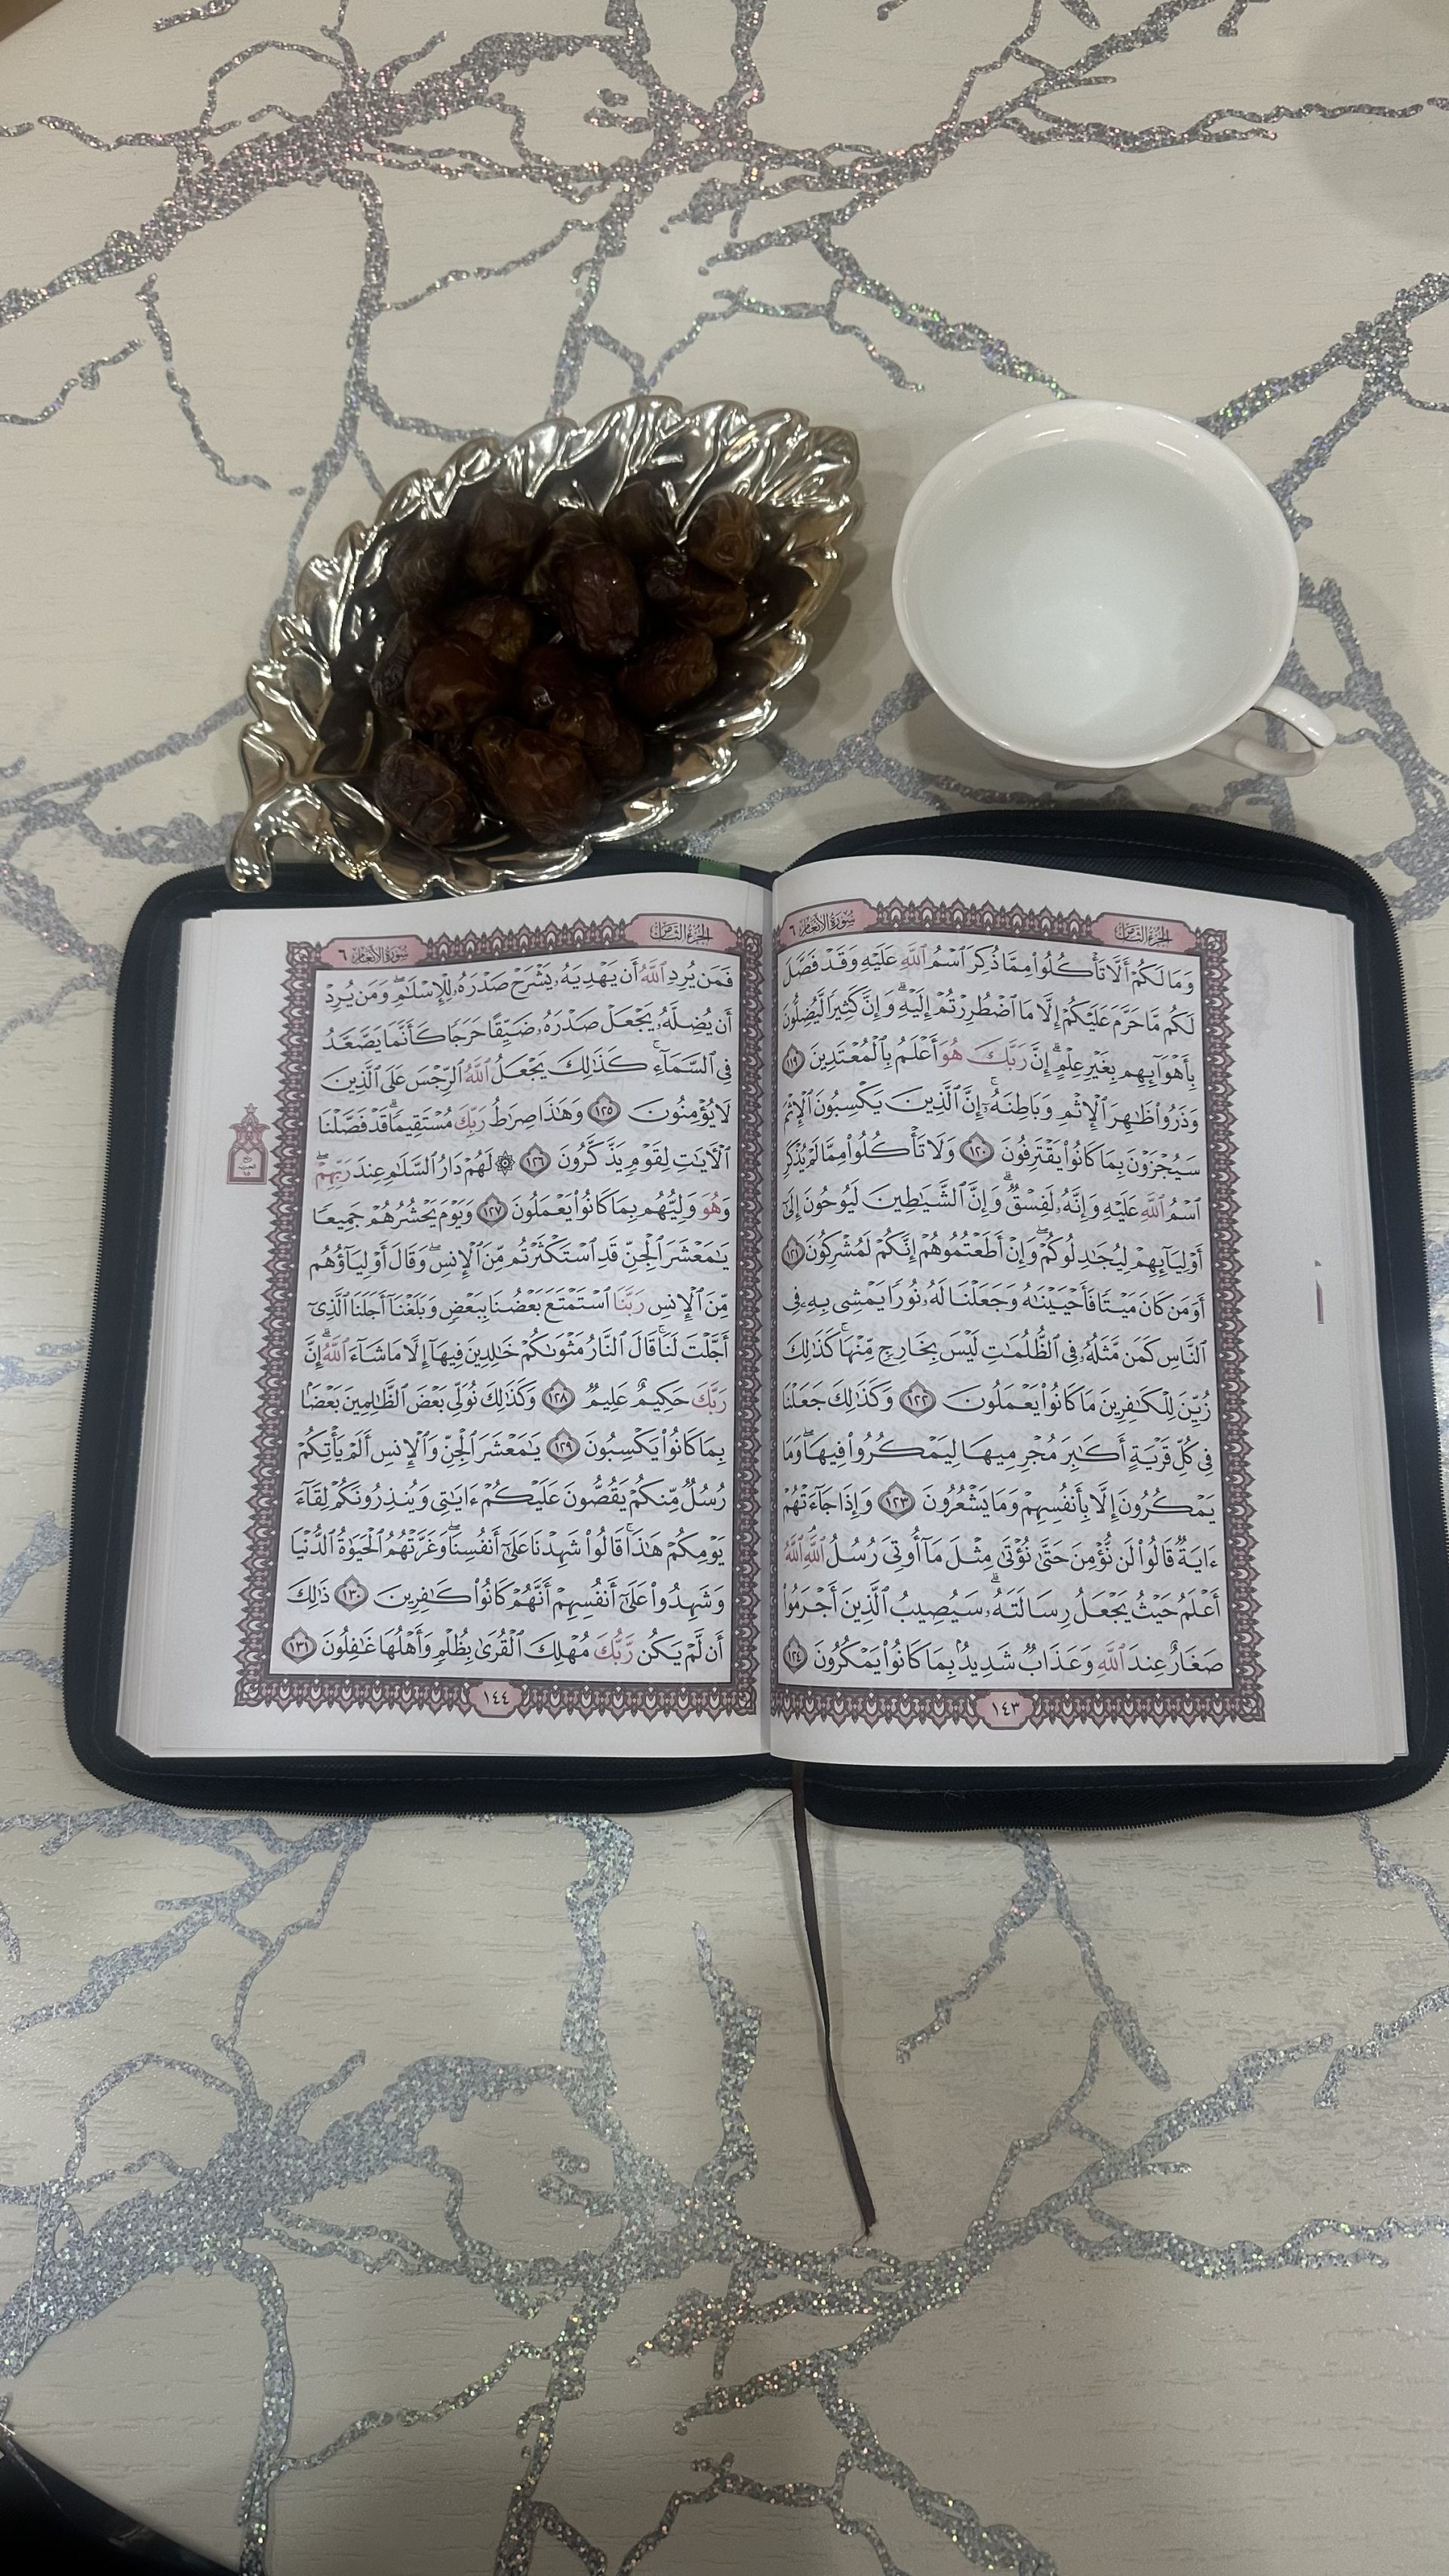 الجزء الثامن سورة الأنعام ٦
وَمَا لَكُمْ أَلَّا تَأْكُلُوا۟ مِمَّا ذُكِرَ ٱسْمُ ٱللَّهِ عَلَيْهِ وَقَدْ فَصَّلَ
لَكُم مَّا حَرَّمَ عَلَيْكُمْ إِلَّا مَا ٱضْطُرِرْتُمْ إِلَيْهِ ۗ وَإِنَّ كَثِيرًا لَّيُضِلُّونَ
بِأَهْوَآئِهِم بِغَيْرِ عِلْمٍ ۗ إِنَّ رَبَّكَ هُوَ أَعْلَمُ بِٱلْمُعْتَدِينَ ١١٩
وَذَرُوا۟ ظَٰهِرَ ٱلْإِثْمِ وَبَاطِنَهُۥٓ ۚ إِنَّ ٱلَّذِينَ يَكْسِبُونَ ٱلْإِثْمَ
سَيُجْزَوْنَ بِمَا كَانُوا۟ يَقْتَرِفُونَ ١٢٠ وَلَا تَأْكُلُوا۟ مِمَّا لَمْ يُذْكَرِ
ٱسْمُ ٱللَّهِ عَلَيْهِ وَإِنَّهُۥ لَفِسْقٌ ۗ وَإِنَّ ٱلشَّيَٰطِينَ لَيُوحُونَ إِلَىٰٓ
أَوْلِيَآئِهِمْ لِيُجَٰدِلُوكُمْ ۖ وَإِنْ أَطَعْتُمُوهُمْ إِنَّكُمْ لَمُشْرِكُونَ ١٢١
أَوَمَن كَانَ مَيْتًا فَأَحْيَيْنَٰهُ وَجَعَلْنَا لَهُۥ نُورًا يَمْشِى بِهِۦ فِى
ٱلنَّاسِ كَمَن مَّثَلُهُۥ فِى ٱلظُّلُمَٰتِ لَيْسَ بِخَارِجٍ مِّنْهَا ۚ كَذَٰلِكَ
زُيِّنَ لِلْكَٰفِرِينَ مَا كَانُوا۟ يَعْمَلُونَ ١٢٢ وَكَذَٰلِكَ جَعَلْنَا
فِى كُلِّ قَرْيَةٍ أَكَٰبِرَ مُجْرِمِيهَا لِيَمْكُرُوا۟ فِيهَا ۖ وَمَا
يَمْكُرُونَ إِلَّا بِأَنفُسِهِمْ وَمَا يَشْعُرُونَ ١٢٣ وَإِذَا جَآءَتْهُمْ
ءَايَةٌ قَالُوا۟ لَن نُّؤْمِنَ حَتَّىٰ نُؤْتَىٰ مِثْلَ مَآ أُوتِىَ رُسُلُ ٱللَّهِ ۘ ٱللَّهُ
أَعْلَمُ حَيْثُ يَجْعَلُ رِسَالَتَهُۥ ۗ سَيُصِيبُ ٱلَّذِينَ أَجْرَمُوا۟
صَغَارٌ عِندَ ٱللَّهِ وَعَذَابٌ شَدِيدٌۢ بِمَا كَانُوا۟ يَمْكُرُونَ ١٢٤
١٤٣
الجزء الثامن سورة الأنعام ٦
فَمَن يُرِدِ ٱللَّهُ أَن يَهْدِيَهُۥ يَشْرَحْ صَدْرَهُۥ لِلْإِسْلَٰمِ ۖ وَمَن يُرِدْ
أَن يُضِلَّهُۥ يَجْعَلْ صَدْرَهُۥ ضَيِّقًا حَرَجًا كَأَنَّمَا يَصَّعَّدُ
فِى ٱلسَّمَآءِ ۚ كَذَٰلِكَ يَجْعَلُ ٱللَّهُ ٱلرِّجْسَ عَلَى ٱلَّذِينَ
لَا يُؤْمِنُونَ ١٢٥ وَهَٰذَا صِرَٰطُ رَبِّكَ مُسْتَقِيمًا ۗ قَدْ فَصَّلْنَا
ٱلْءَايَٰتِ لِقَوْمٍ يَذَّكَّرُونَ ١٢٦ ۞ لَهُمْ دَارُ ٱلسَّلَٰمِ عِندَ رَبِّهِمْ ۖ
وَهُوَ وَلِيُّهُم بِمَا كَانُوا۟ يَعْمَلُونَ ١٢٧ وَيَوْمَ يَحْشُرُهُمْ جَمِيعًا
يَٰمَعْشَرَ ٱلْجِنِّ قَدِ ٱسْتَكْثَرْتُم مِّنَ ٱلْإِنسِ ۖ وَقَالَ أَوْلِيَآؤُهُم
مِّنَ ٱلْإِنسِ رَبَّنَا ٱسْتَمْتَعَ بَعْضُنَا بِبَعْضٍ وَبَلَغْنَآ أَجَلَنَا ٱلَّذِىٓ
أَجَّلْتَ لَنَا ۚ قَالَ ٱلنَّارُ مَثْوَىٰكُمْ خَٰلِدِينَ فِيهَآ إِلَّا مَا شَآءَ ٱللَّهُ ۗ إِنَّ
رَبَّكَ حَكِيمٌ عَلِيمٌ ١٢٨ وَكَذَٰلِكَ نُوَلِّى بَعْضَ ٱلظَّٰلِمِينَ بَعْضًۢا
بِمَا كَانُوا۟ يَكْسِبُونَ ١٢٩ يَٰمَعْشَرَ ٱلْجِنِّ وَٱلْإِنسِ أَلَمْ يَأْتِكُمْ
رُسُلٌ مِّنكُمْ يَقُصُّونَ عَلَيْكُمْ ءَايَٰتِى وَيُنذِرُونَكُمْ لِقَآءَ
يَوْمِكُمْ هَٰذَا ۚ قَالُوا۟ شَهِدْنَا عَلَىٰٓ أَنفُسِنَا ۖ وَغَرَّتْهُمُ ٱلْحَيَوٰةُ ٱلدُّنْيَا
وَشَهِدُوا۟ عَلَىٰٓ أَنفُسِهِمْ أَنَّهُمْ كَانُوا۟ كَٰفِرِينَ ١٣٠ ذَٰلِكَ
أَن لَّمْ يَكُن رَّبُّكَ مُهْلِكَ ٱلْقُرَىٰ بِظُلْمٍ وَأَهْلُهَا غَٰفِلُونَ ١٣١
١٤٤